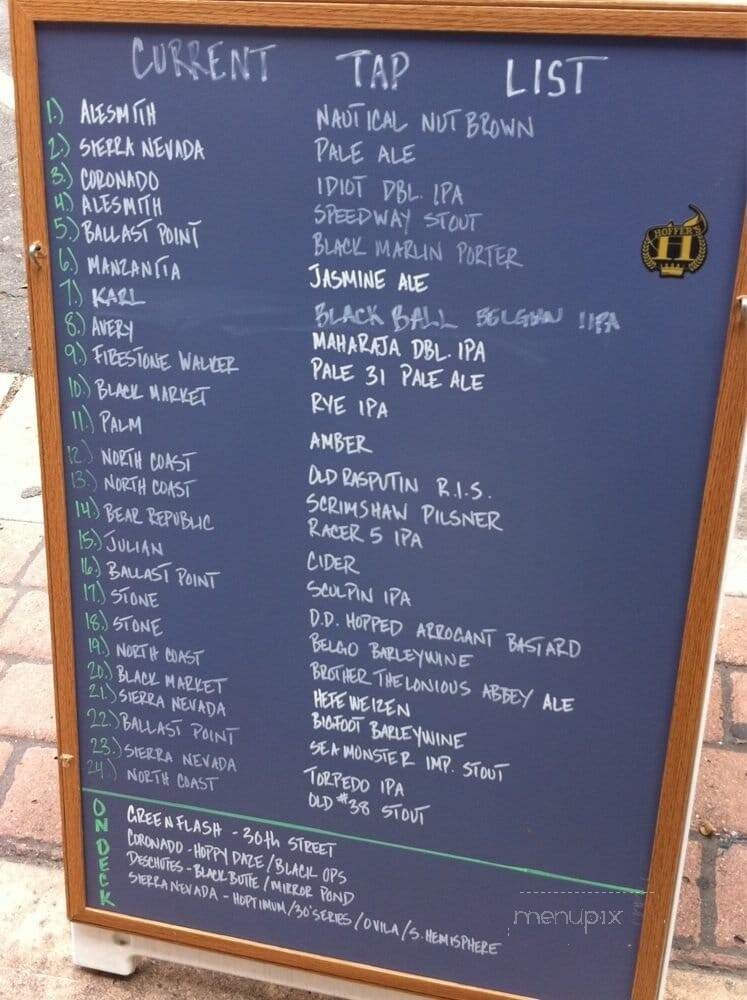 CURRENT TAP LIST
1.) ALESMITH NAUTICAL NUT BROWN
2.) SIERRA NEVADA PALE ALE
3.) CORONADO IDIOT DBL. IPA
4.) ALESMITH SPEEDWAY STOUT
5.) BALLAST POINT BLACK MARLIN PORTER
6.) MANZANITA JASMINE ALE
7.) KARL BLACK BALL BELGIAN IIPA
8.) AVERY MAHARAJA DBL. IPA
9.) FIRESTONE WALKER PALE 31 PALE ALE
10.) BLACK MARKET RYE IPA
11.) PALM AMBER
12.) NORTH COAST OLD RASPUTIN R.I.S.
13.) NORTH COAST SCRIMSHAW PILSNER
14.) BEAR REPUBLIC RACER 5 IPA
15.) JULIAN CIDER
16.) BALLAST POINT SCULPIN IPA
17.) STONE D.D. HOPPED ARROGANT BASTARD
18.) STONE BELGO BARLEYWINE
19.) NORTH COAST BROTHER THELONIOUS ABBEY ALE
20.) BLACK MARKET HEFEWEIZEN
21.) SIERRA NEVADA BIGFOOT BARLEYWINE
22.) BALLAST POINT SEA MONSTER IMP. STOUT
23.) SIERRA NEVADA TORPEDO IPA
24.) NORTH COAST OLD #38 STOUT
HOFFER'S
H
ON DECK
GREEN FLASH - 30th STREET
CORONADO - HOPPY DAZE / BLACK OPS
DESCHUTES - BLACK BUTTE / MIRROR POND
SIERRA NEVADA - HOPTIMUM / 30 SERIES / OVILA / S. HEMISPHERE
menupix